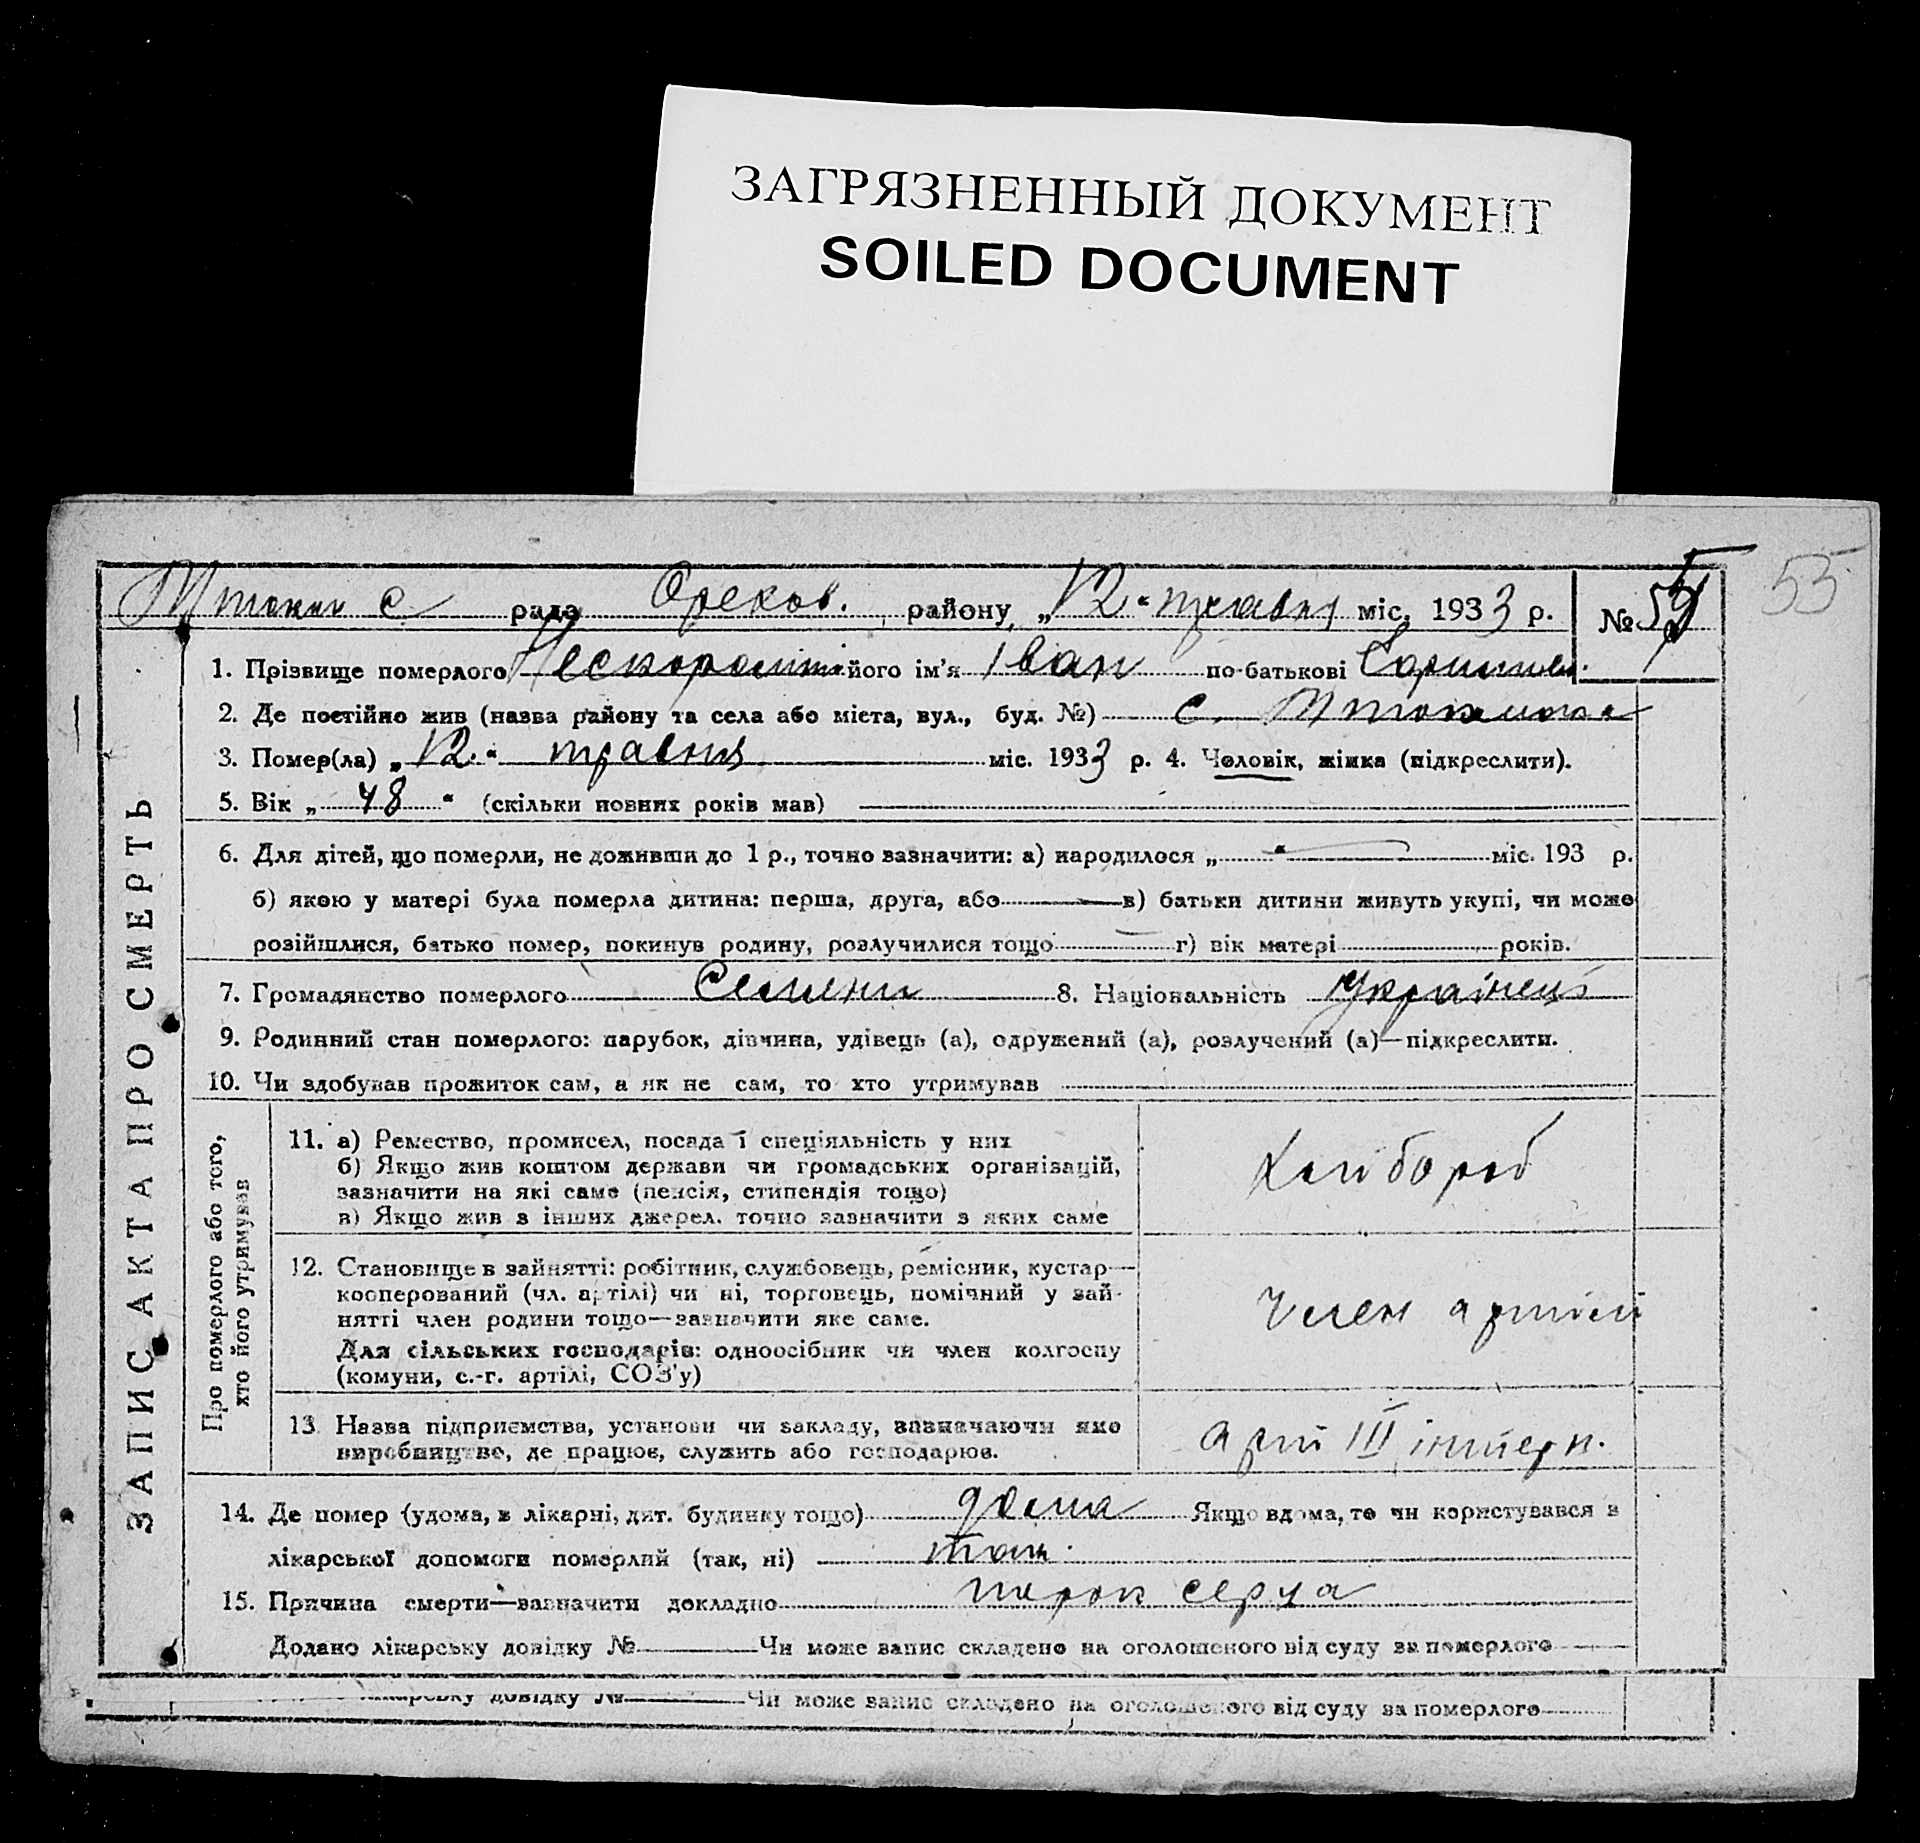 ЗАГРЯЗНЕННЫЙ ДОКУМЕНТ
SOILED DOCUMENT
55
с рада Орехов. району, „12“ травня міс. 1933 р. №
ЗАПИС АКТА ПРО СМЕРТЬ
1. Прізвище померлого його ім’я Іван по-батькові
2. Де постійно жив (назва району та села або міста, вул., буд. №) с.
3. Помер(ла) „12“ травня міс. 1933 р. 4. Чоловік, жінка (підкреслити).
5. Вік „48“ (скільки повних років мав)
6. Для дітей, що померли, не доживши до 1 р., точно зазначити: а) народилося „ “ міс. 193 р.
б) якою у матері була померла дитина: перша, друга, або в) батьки дитини живуть укупі, чи може
розійшлися, батько помер, покинув родину, розлучилися тощо г) вік матері років.
7. Громадянство померлого 8. Національність Українець
9. Родинний стан померлого: парубок, дівчина, удівець (а), одружений (а), розлучений (а)—підкреслити.
10. Чи здобував прожиток сам, а як не сам, то хто утримував
Про померлого або того,
хто його утримував
11. а) Ремество, промисел, посада і спеціяльність у них
б) Якщо жив коштом держави чи громадських організацій,
зазначити на які саме (пенсія, стипендія тощо)
в) Якщо жив з інших джерел, точно зазначити з яких саме
Хлібороб
12. Становище в зайнятті: робітник, службовець, ремісник, кустар—
кооперований (чл. артілі) чи ні, торговець, помічний у зай-
нятті член родини тощо—зазначити яке саме.
Для сільських господарів: одноосібник чи член колгоспу
(комуни, с.-г. артілі, СОЗ'у)
Член артілі
13 Назва підприємства, установи чи закладу, зазначаючи яке
виробництво, де працює, служить або господарює.
Арті III інтерн.
14. Де помер (удома, в лікарні, дит. будинку тощо) дома Якщо вдома, то чи користувався з
лікарської допомоги померлий (так, ні) так.
15. Причина смерти—зазначити докладно порок серця
Додано лікарську довідку № Чи може запис складено на оголошеного від суду за померлого
лікарську довідку № Чи може запис складено на оголошеного від суду за померлого